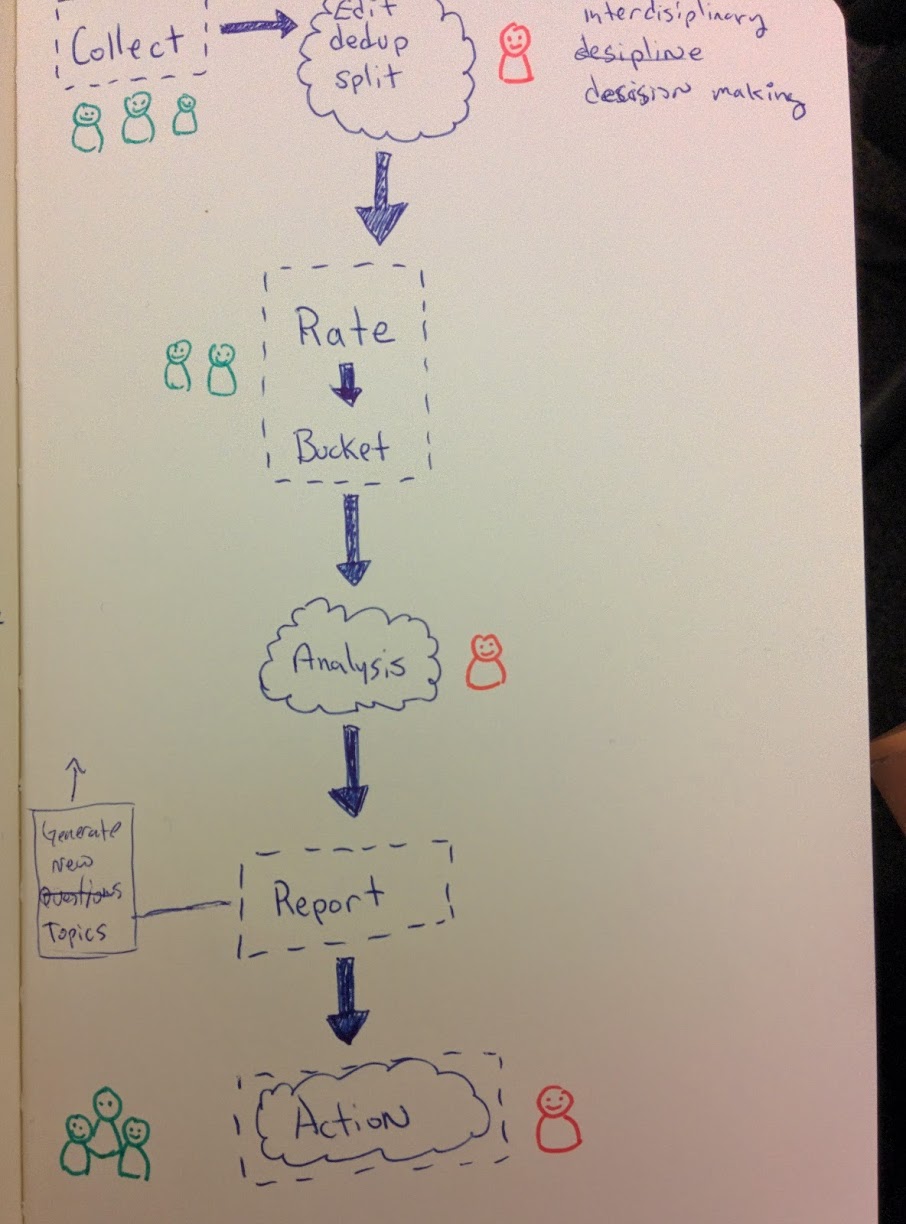 Collect
Edit
dedup
split
interdisiplinary
desipline
desision making
Rate
Bucket
Analysis
Generate
New
Questions
Topics
Report
Action